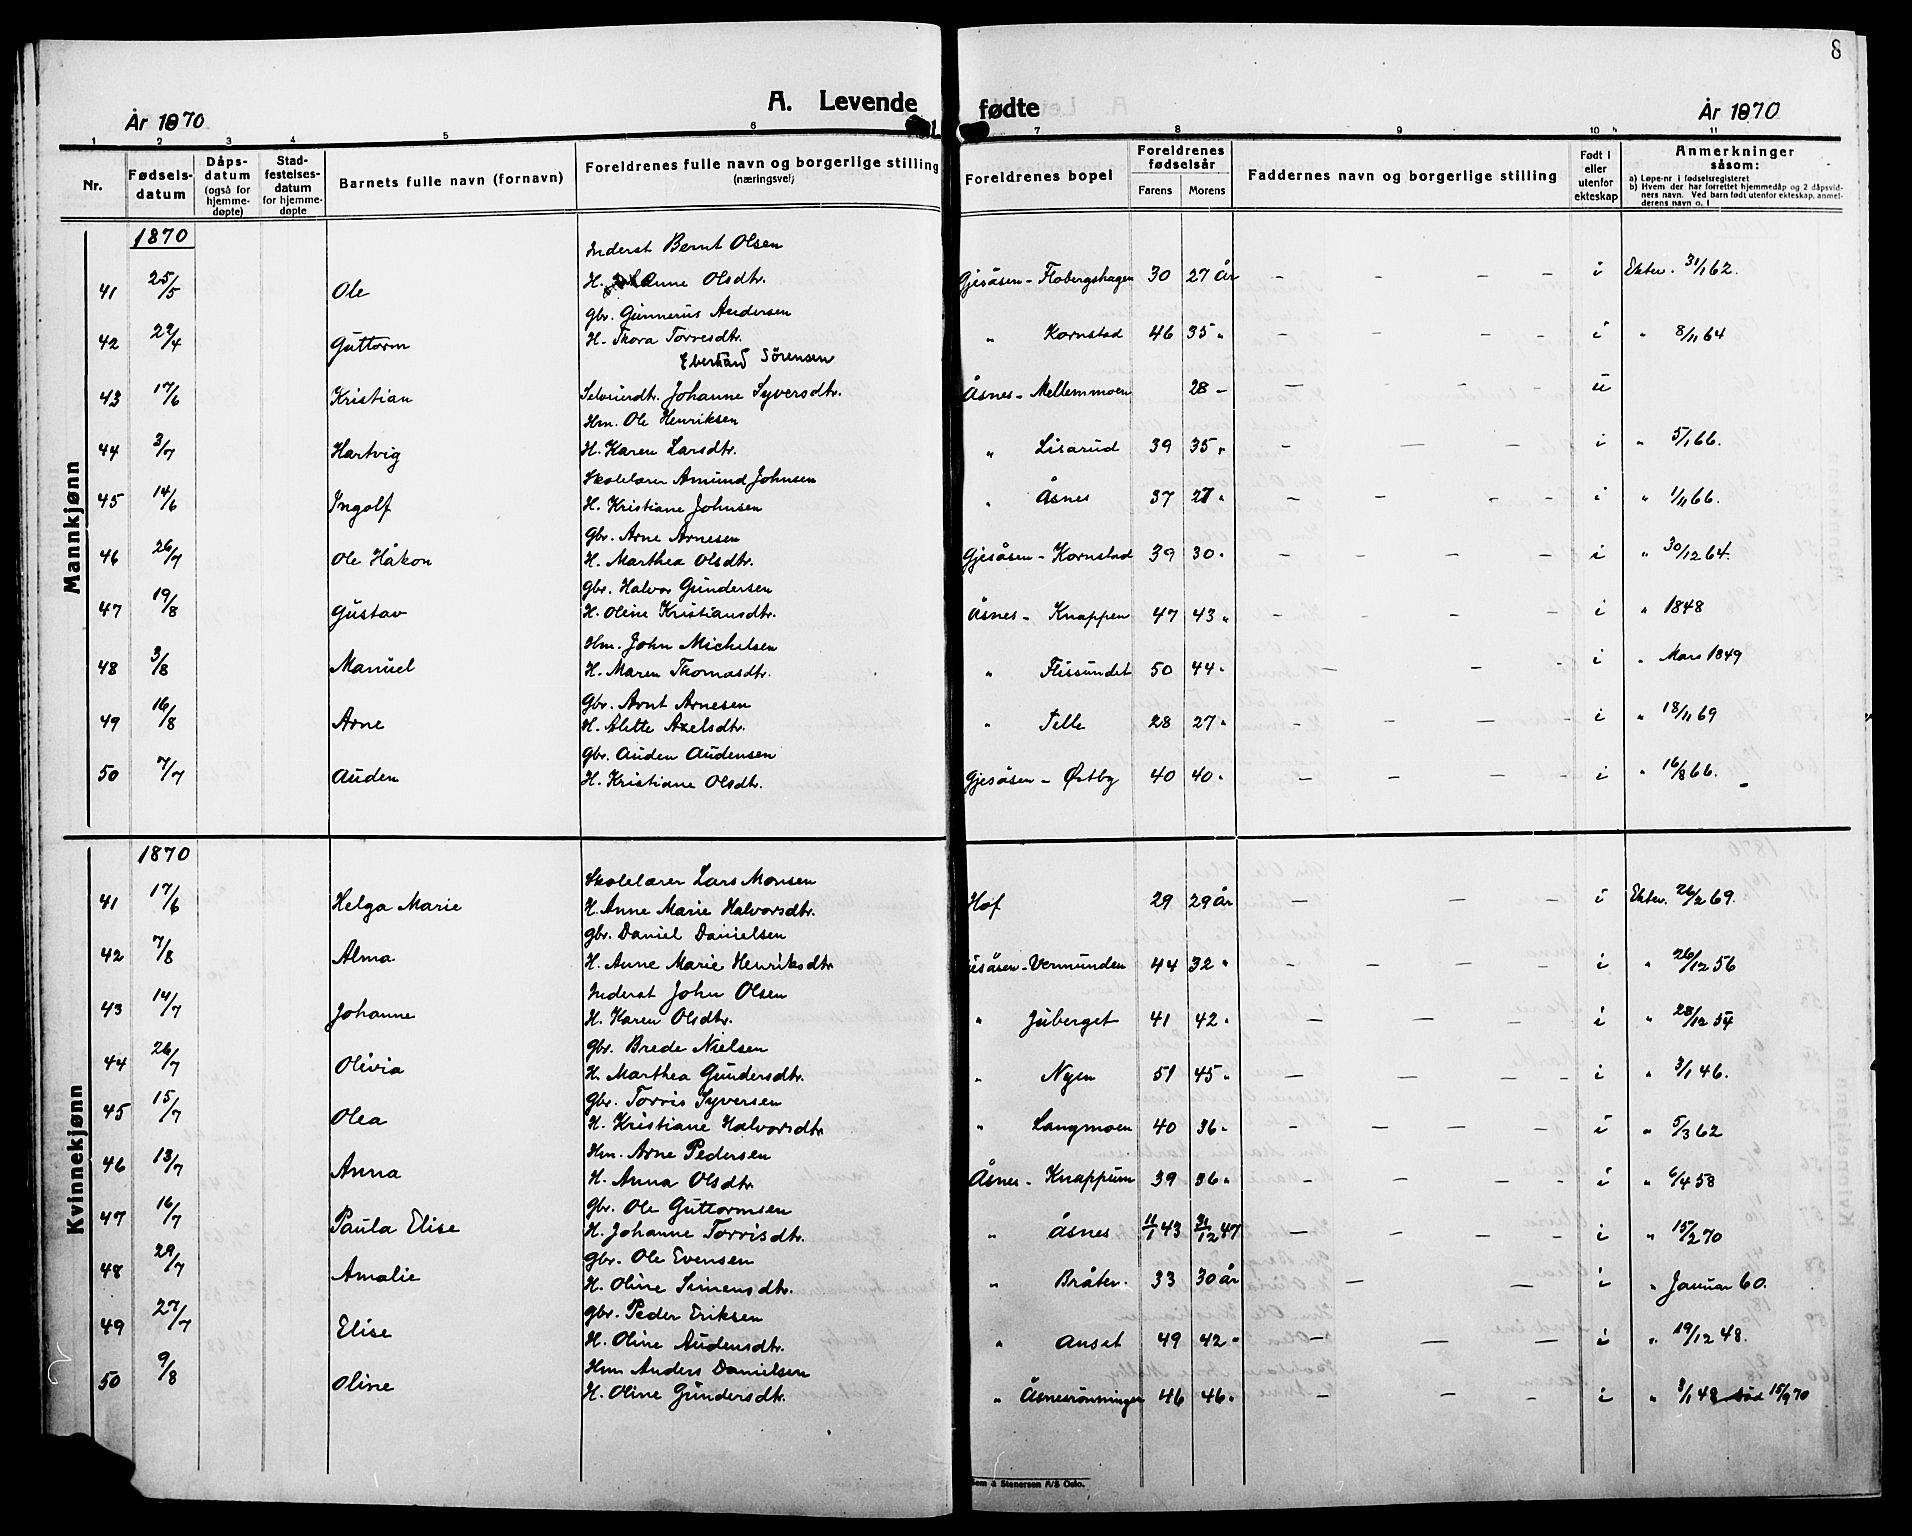 8
A. Levende fødte
År 1870
År 1870
1 2 3 4 5 6 7 8 9 10 11
Nr.
Fødsels-
datum
Dåps-
datum
(også for
hjemme-
døpte)
Stad-
festelses-
datum
for hjemme-
døpte
Barnets fulle navn (fornavn)
Foreldrenes fulle navn og borgerlige stilling
(næringsvei)
Foreldrenes bopel
Foreldrenes
fødselsår
Farens Morens
Faddernes navn og borgerlige stilling
Født i
eller
utenfor
ekteskap
Anmerkninger
såsom:
a) Løpe-nr i fødselsregisteret
b) Hvem der har forrettet hjemmedåp og 2 dåpsvid-
ners navn. Ved barn født utenfor ekteskap, anmel-
derens navn o. l
Mannkjønn
1870
Inderst Bernt Olsen
41 25/5 Ole H. Anne Olsdtr. Gjesåsen - Flobergshagen 30 27 år - - - - i Ektev. 31/1 62.
gbr. Gunnerius Andersen
42 22/4 Guttorm H. Thora Torresdtr. " Kornstad 46 35 " - - - - i " 8/11 64
Eberhard Sörensen
43 17/6 Kristian Selveierdt. Johanne Syversdtr. Åsnes - Mellemmoen 28 - - - - - u
Hm. Ole Henriksen
44 3/7 Hartvig H. Karen Larsdtr. " Lisarud 39 35 " - - - - i " 5/1 66.
Skolelærer Amund Johnsen
45 14/6 Ingolf H. Kristiane Johnsen " Åsnes 37 27 " - - - - i " 1/11 66.
gbr. Arne Arnesen
46 26/7 Ole Håkon H. Marthea Olsdtr. Gjesåsen - Kornstad 39 30 " - - - - i " 30/12 64.
gbr. Halvor Gundersen
47 19/8 Gustav H. Oline Kristiansdtr. Åsnes - Knappen 47 43 " - - - - i " 1848
Hm. John Michelsen
48 3/8 Manuel H. Maren Thomasdtr. " Flissundet 50 44 " - - - i " Mars 1849
Gbr. Arnt Arnesen
49 16/8 Arne H. Alette Axelsdtr. " Telle 28 27 " - - - - i " 18/11 69
gbr. Auden Audensen
50 7/7 Auden H. Kristiane Olsdtr. Gjesåsen - Østby 40 40 " - - - - i " 16/8 66.
Kvinnekjønn
1870
Skolelærer Lars Monsen
41 17/6 Helga Marie H. Anne Marie Halvorsdtr. Hof 29 29 år - - - - i Ektev. 26/2 69.
gbr. Daniel Danielsen
42 7/8 Alma H. Anne Marie Henriksdtr jesåsen - Vermunden 44 32 " - - - - i " 26/12 56
Inderst John Olsen
43 14/7 Johanne H. Karen Olsdtr. " Juberget 41 42 " - - - - i " 28/12 54
gbr. Brede Nielsen
44 26/7 Olivia H. Marthea Gundersdtr. " Nyen 51 45 " - - - - i " 3/1 46.
gbr. Torris Syversen
45 15/7 Olea H. Kristiane Halvorsdtr " Langmoen 40 36 " - - - - i " 5/3 62
Hm. Arne Pedersen
46 13/7 Anna H. Anna Olsdtr. Åsnes - Knappum 39 36 " - - - - i " 6/4 58
gbr. Ole Guttormsen
47 16/7 Paula Elise H. Johanne Torrisdtr. " Åsnes 11/1 43 31/12 47 - - - - i " 15/2 70
gbr. Ole Evensen
48 29/7 Amalie H. Oline Simensdtr. " Bråten 33 30 år - - - i " Januar 60.
gbr. Peder Eriksen
49 27/7 Elise H. Oline Audensdtr. " Anset 49 42 " - - - i " 19/12 48.
Hm Anders Danielsen
50 9/8 Oline H. Oline Gundersdtr. " Åsnesrønningen 46 46 " - - - - i " 3/1 48 død 15/9 70
Sem & Stenersen A/S Oslo.